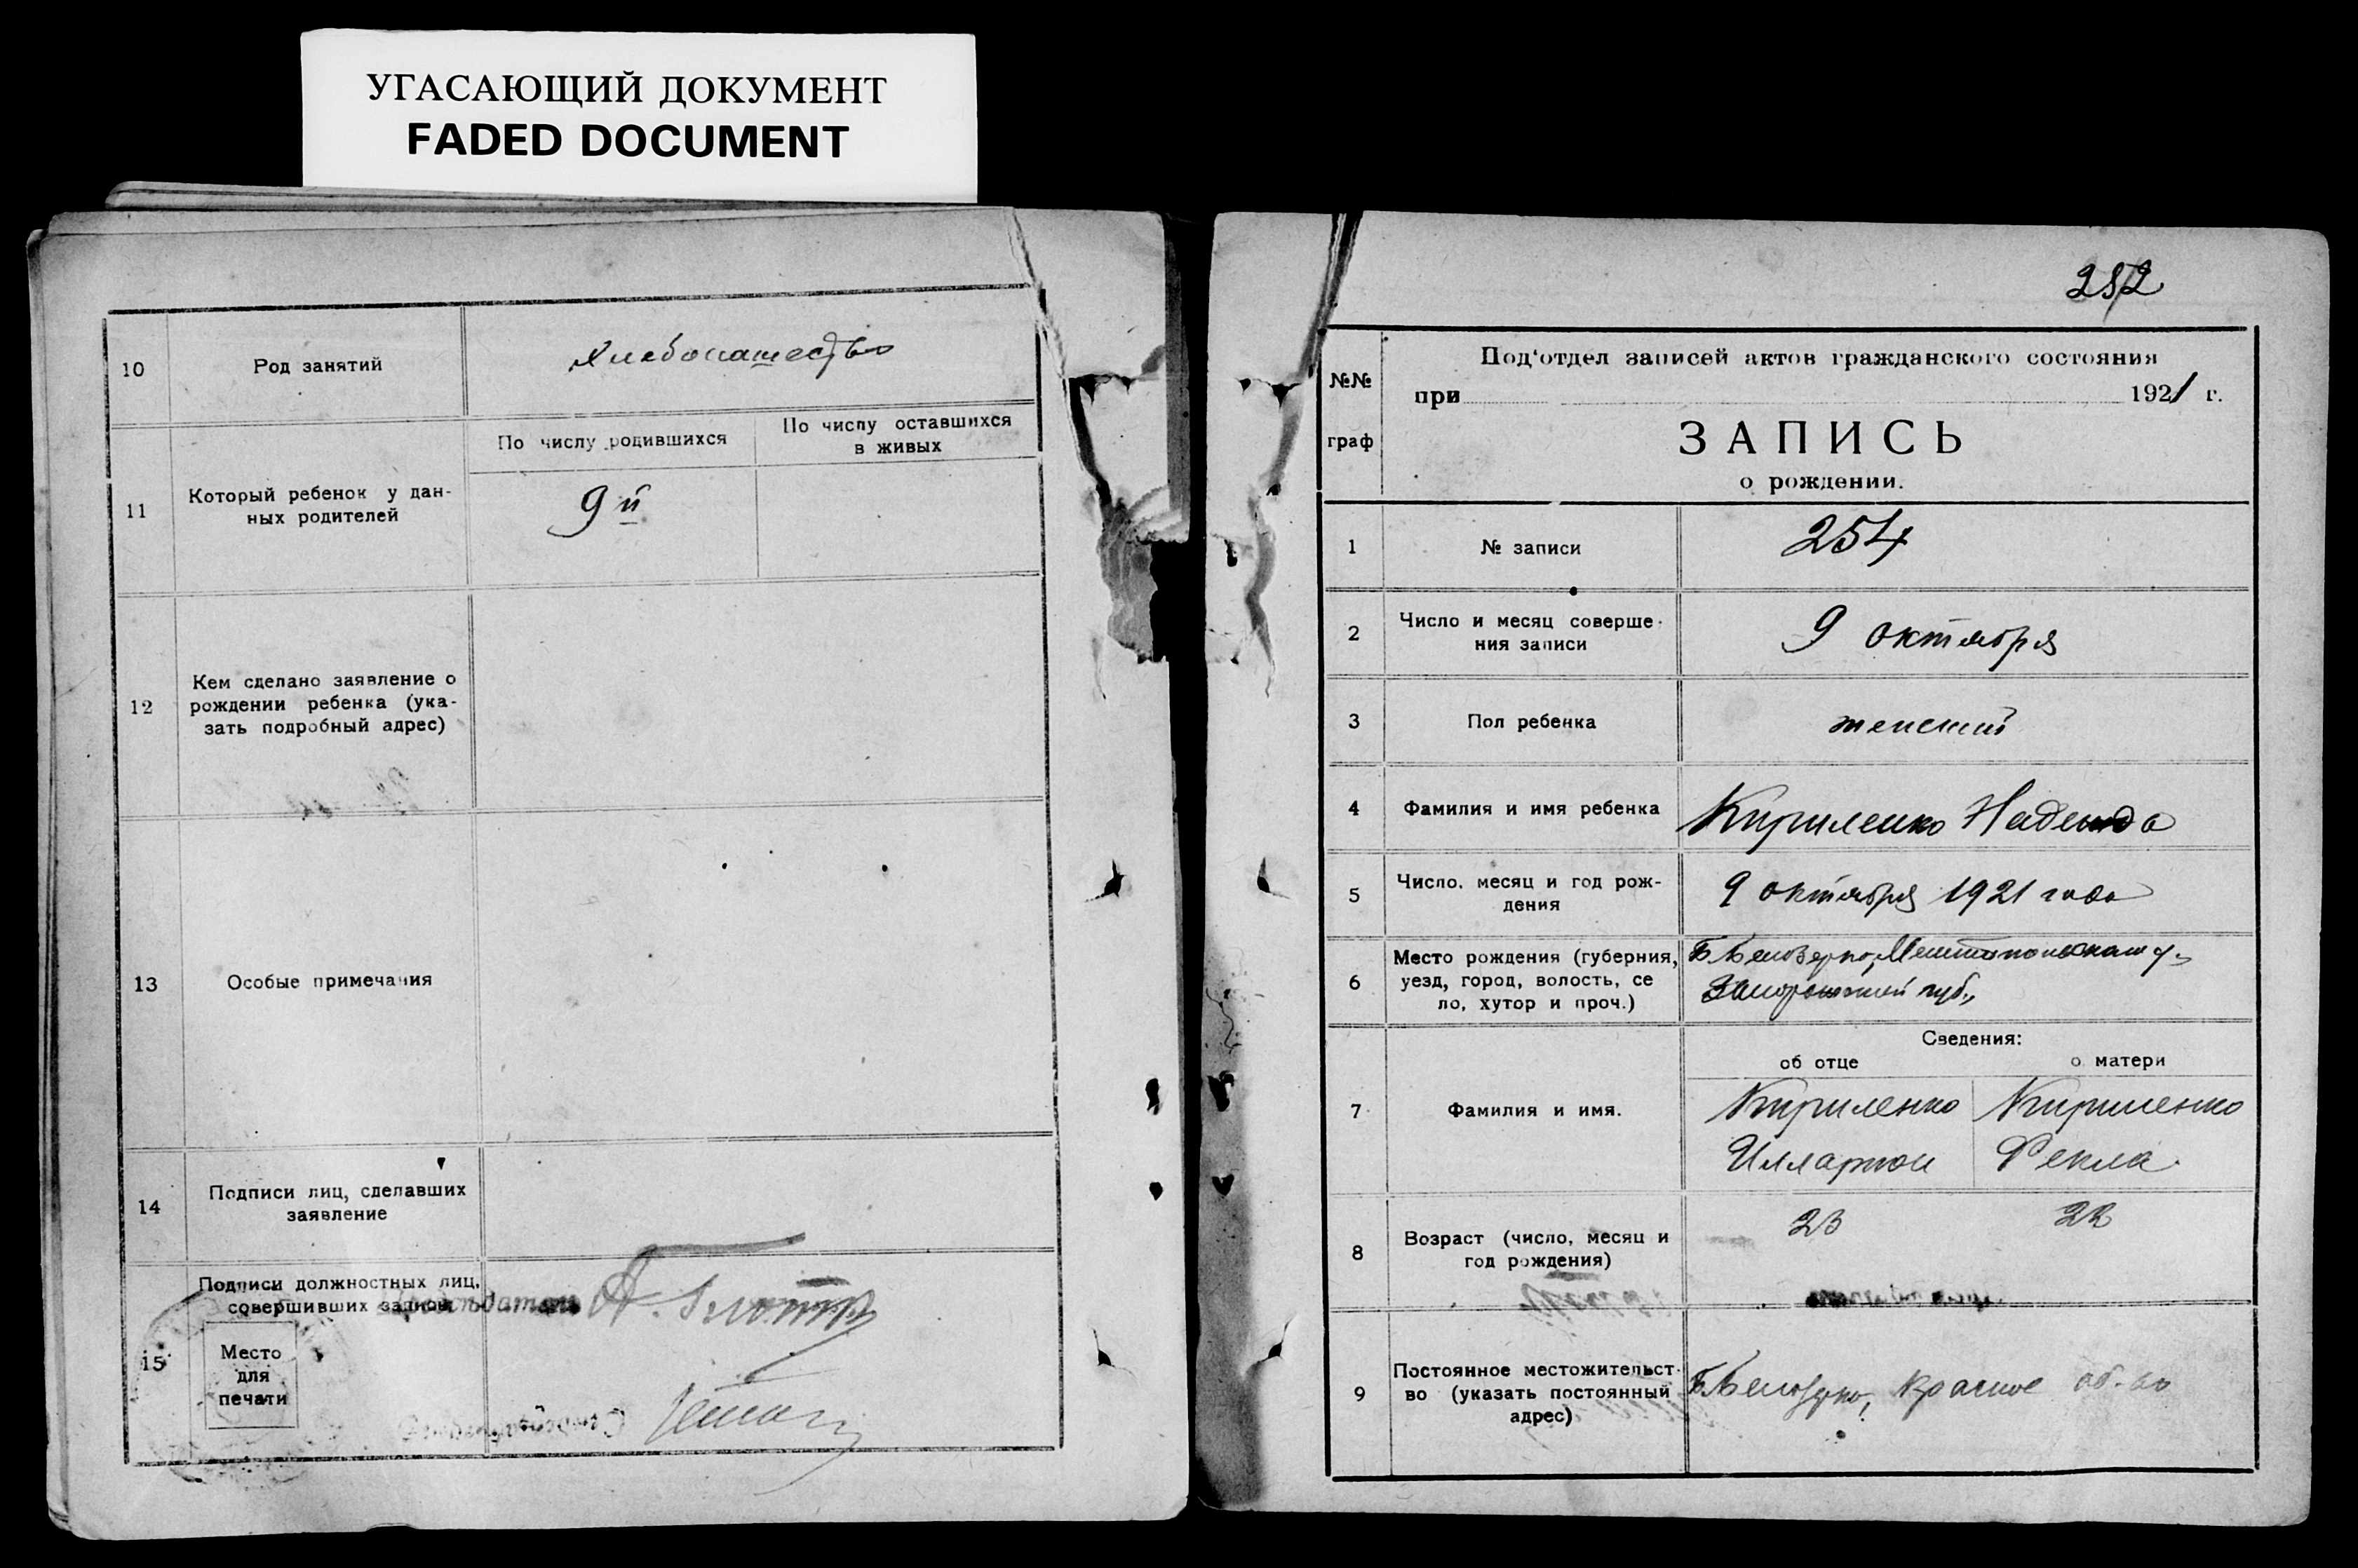 УГАСАЮЩИЙ ДОКУМЕНТ
FADED DOCUMENT
10 Род занятий хлебопашество
11 Который ребенок у дан-
ных родителей
По числу родившихся
По числу оставшихся
в живых
9й
12 Кем сделано заявление о
рождении ребенка (ука-
зать подробный адрес)
13 Особые примечания
14 Подписи лиц, сделавших
заявление
15 Подписи должностных лиц,
совершивших запись
Председатель
Место
для
печати
252
№№
граф
Под'отдел записей актов гражданского состояния
при 1921 г.
ЗАПИСЬ
о рождении.
1 № записи 254
2 Число и месяц соверше-
ния записи
9 октября
3 Пол ребенка женский
4 Фамилия и имя ребенка Кириленко Надежда
5 Число, месяц и год рож-
дения
9 октября 1921 года
6 Место рождения (губерния,
уезд, город, волость, се
ло, хутор и проч.)
Б Белозерко, Мелитопольского у.
Запорожской губ.,
Сведения:
об отце о матери
7 Фамилия и имя.
Кириленко Кириленко
Илларион Фекла
8 Возраст (число, месяц и
год рождения)
23 22
9 Постоянное местожительст-
во (указать постоянный
адрес)
Б.Белозерко, Красное об-во